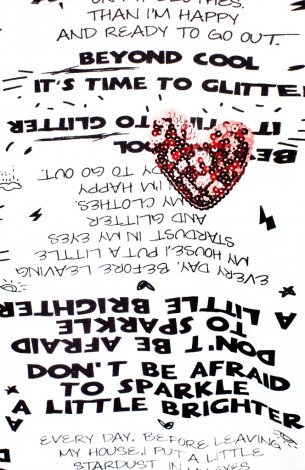 ON MY CLOTHES.
THAN I'M HAPPY
AND READY TO GO OUT.
BEYOND COOL
IT'S TIME TO GLITTE
IT TO GLITTER
BE COOL
DY TO GO OUT
I'M HAPPY
MY CLOTHES.
AND GLITTER
STARDUST IN MY EYES
MY HOUSE, I PUT A LITTLE
EVERY DAY, BEFORE LEAVING
A LITTLE BRIGHTER
TO SPARKLE
DON'T BE AFRAID
DON'T BE AFRAID
TO SPARKLE
A LITTLE BRIGHTER
EVERY DAY, BEFORE LEAVING
MY HOUSE, I PUT A LITTLE
STARDUST IN MY EYES